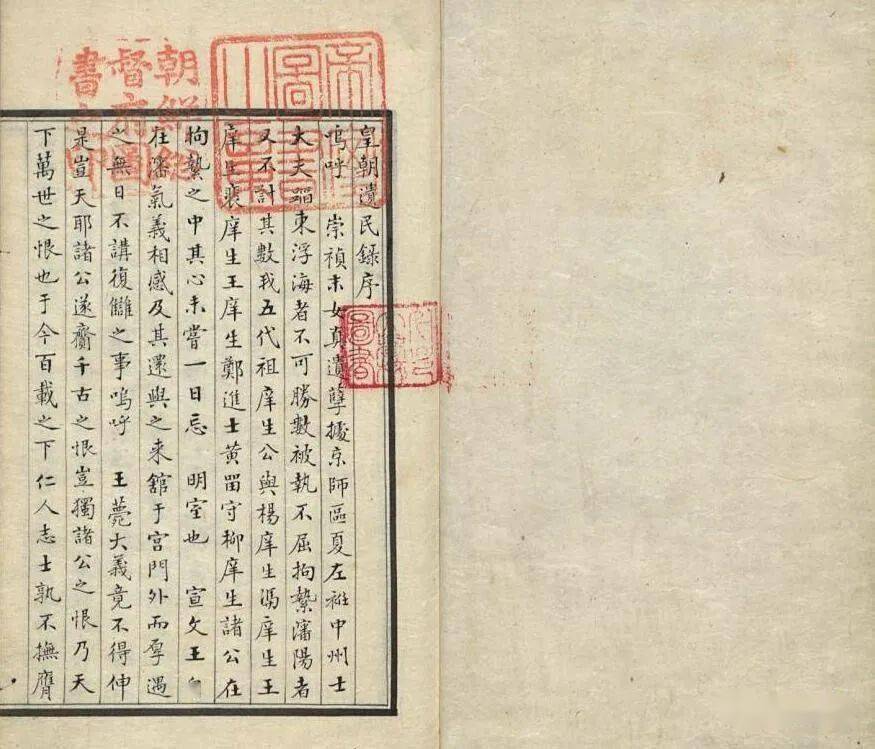 朝鮮總
督府圖
書之印
圖書
之章
皇朝遺民錄序
嗚呼 崇禎末女真遺孽據京師區夏左袵中州士
大夫蹈東浮海者不可勝數被執不屈拘縶瀋陽者
又不計其數我五代祖庠生公與楊庠生馮庠生王
庠生裴庠生王庠生鄭進士黃畱守柳庠生諸公在
拘縶之中其心未嘗一日忘 明室也 宣文王
在瀋氣義相感及其還與之來舘于宮門外而厚遇
之無日不講復讎之事嗚呼 王薨大義竟不得伸
是豈天耶諸公遂齎千古之恨豈獨諸公之恨乃天
下萬世之恨也于今百載之下仁人志士孰不撫膺
圖書